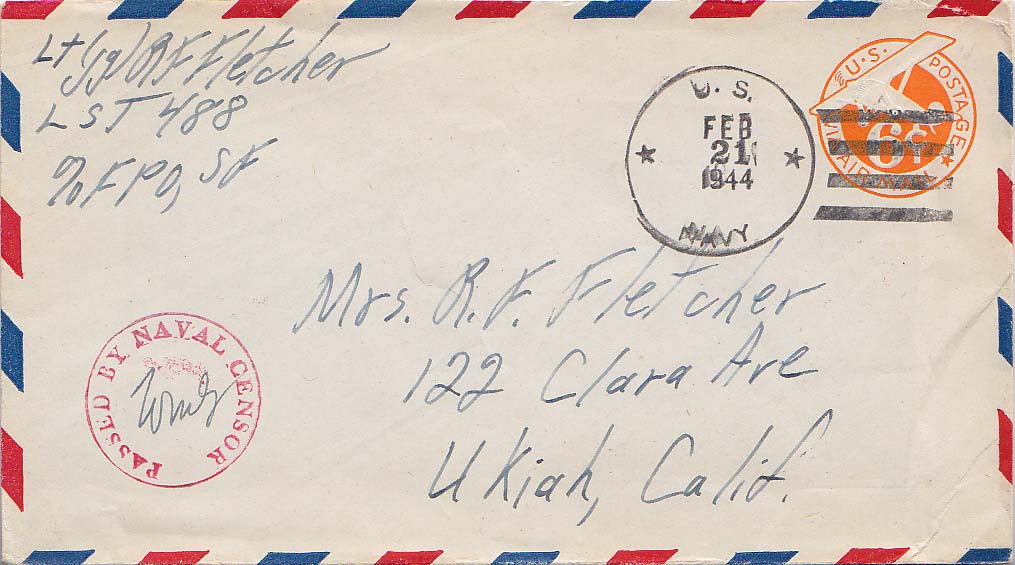 Lt(jg) R F Fletcher
LST 488
℅ FPO, SF
U.S.
FEB
21
1944
NAVY
U.S. POSTAGE
6¢
AIR MAIL
Mrs. R. F. Fletcher
122 Clara Ave
Ukiah, Calif.
PASSED BY NAVAL CENSOR